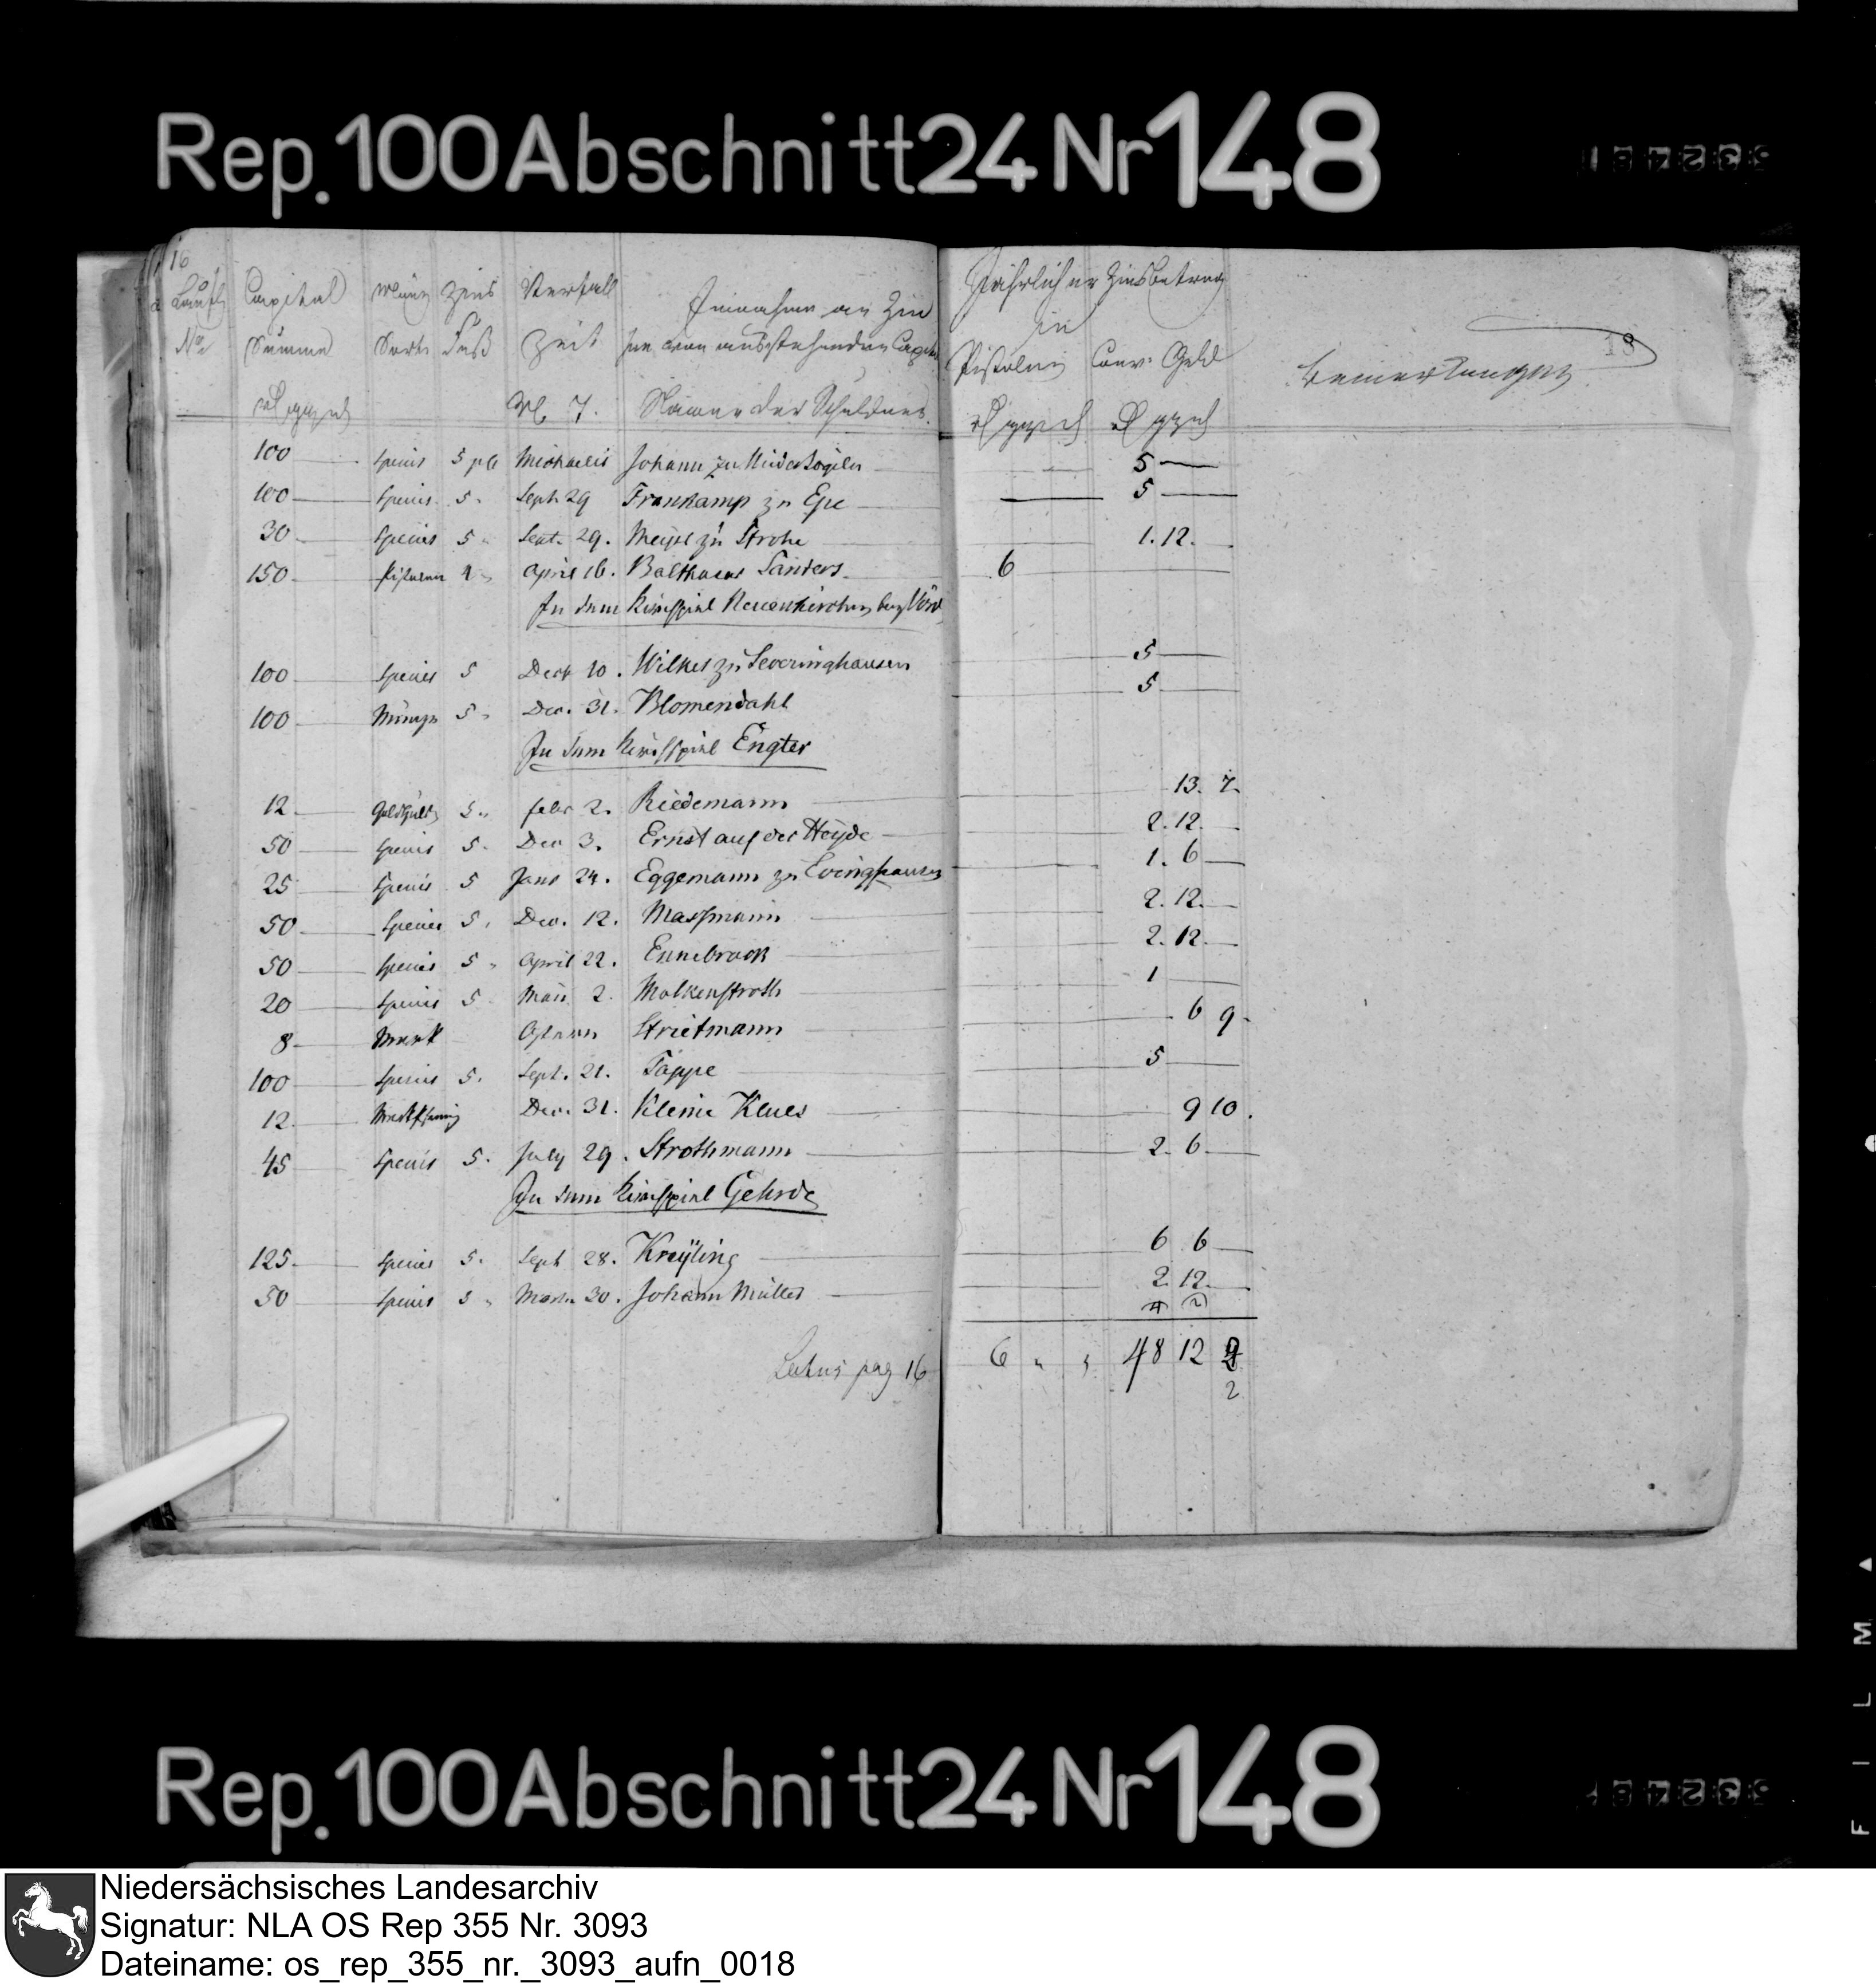 Rep. 100 Abschnitt 24 Nr 148
16
Laufd Capital Münz Zins Verfall Einnahme an Zin
No Summe Sorte Fuß Zeit sen von ausstehenden Capit
M. 7. Name der Schuldner
Jährlicher Zinsbetrag
in
Pistolen Conv. Geld
Bemerkungen
18
100 Species 5 pC Michaelis Johann zu 5
100 Species 5. Sept. 29 Frankamp zu Epe 5
30 Species 5 Sept. 29. Meyer zu Strohe 1. 12.
150 Pistolen 4 April 16. Balthasar Sanders 6
In dem Kirchspiel Neuenkirchen bey Vörd
100 Species 5 Decb 10. Wilker zu Severinghausen 5
100 Münze 5 Dec. 31. Blomendahl 5
In dem Kirchspiel Engter
12 Goldguld 5 febr 2. Riedemann 13. 7
50 Species 5. Dec 3. Ernst auf der Heyde 2. 12.
25 Species 5 Janr 24. Eggemann zu Evinghausen 1. 6
50 Species 5. Dec. 12. Massmann 2. 12.
50 Species 5 April 22. Ennebrock 2. 12.
20 Species 5 Mai 2. Molkenstroth 1
8 Mark Ostern Strietmann 6 9
100 Species 5. Sept. 21. Tappe 5
12 Dec. 31. Kleine Klues 9 10.
45 Species 5. July 29. Strothmann 2. 6
In dem Kirchspiel Gehrde
125 Species 5. Sept 28. Kreÿling 6 6
50 Species 5 30. Johann Müller 2 12
Latus pag 16 6 " " 48 12
2
Rep. 100 Abschnitt 24 Nr 148
FILM
Niedersächsisches Landesarchiv
Signatur: NLA OS Rep 355 Nr. 3093
Dateiname: os_rep_355_nr._3093_aufn_0018